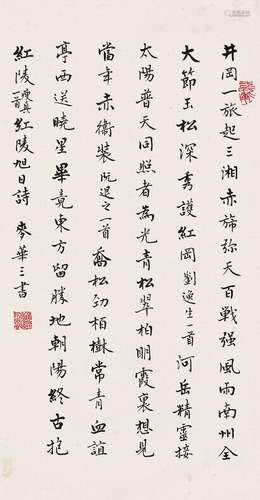 井岡一旅起三湘赤旆弥天百戰强風雨南州全
大節玉松深秀護紅岡劉逸生一首河岳精靈接
太陽普天同照者為光青松翠柏明霞裏想見
當年赤衛裝阮退之一首喬松勁柏樹常青血誼
亭西送曉星畢竟東方留勝地朝陽終古抱
紅陵一首紅陵旭日詩 麥華三書